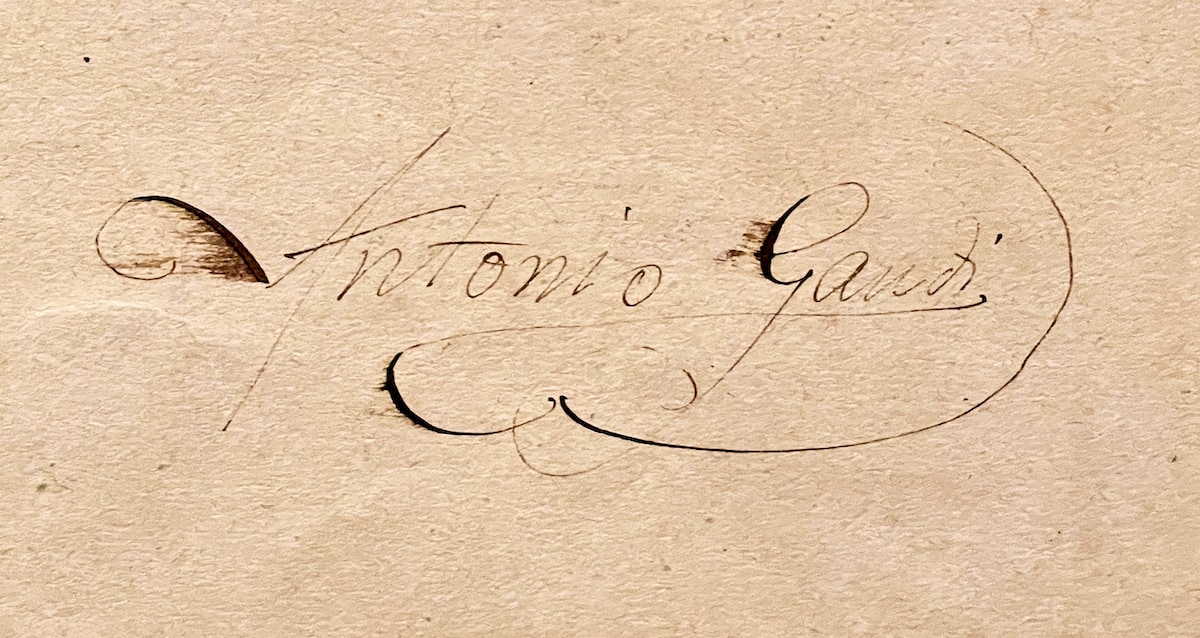 Antonio Gaudí